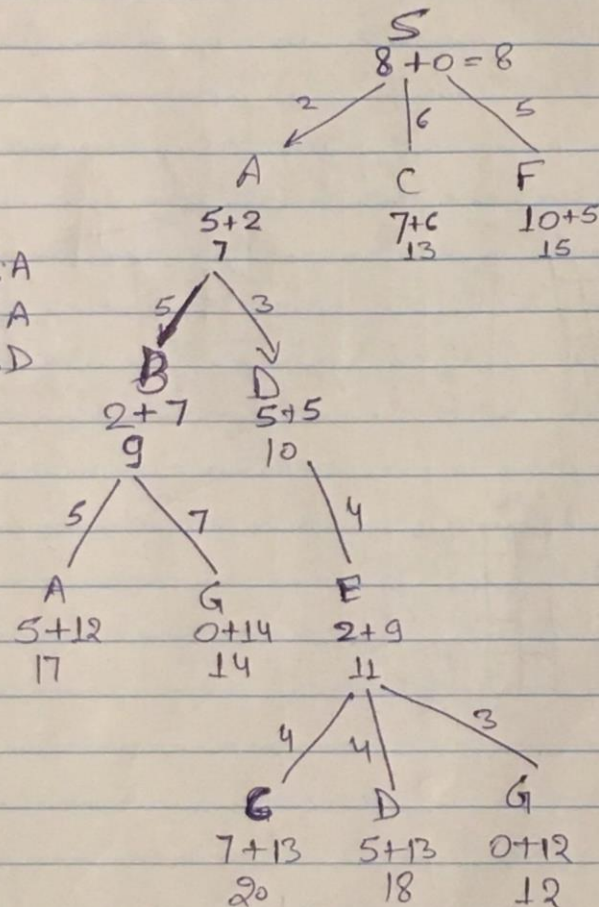 S
8+0=8
2 6 5
A C F
5+2 7+6 10+5
7 13 15
:A
A
D
5 3
B D
2+7 5+5
9 10
5 7 4
A G E
5+12 0+14 2+9
17 14 11
4 4 3
C D G
7+13 5+13 0+12
20 18 12